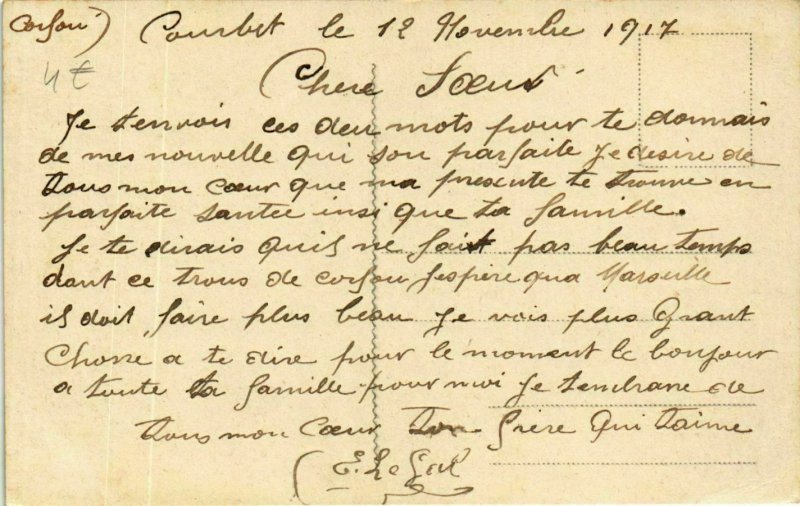 Corfou) Courbet le 12 Novembre 1917
4€
Chere Sœur
Je t'envois ces deu mots pour te donnais
de mes nouvelle qui son parfaite Je desire de
tous mon cœur que ma presente te trouve en
parfaite santee insi que ta famille.
Je te dirais quil ne fait pas beau temps
dant ce trous de corfou Jespere qua Marseille
il doit faire plus beau Je vois plus Grant
Chosse a te dire pour le moment le bonjour
a toute ta famille pour moi Je tembrase de
tous mon Cœur ton frere qui taime
E. Le Gall